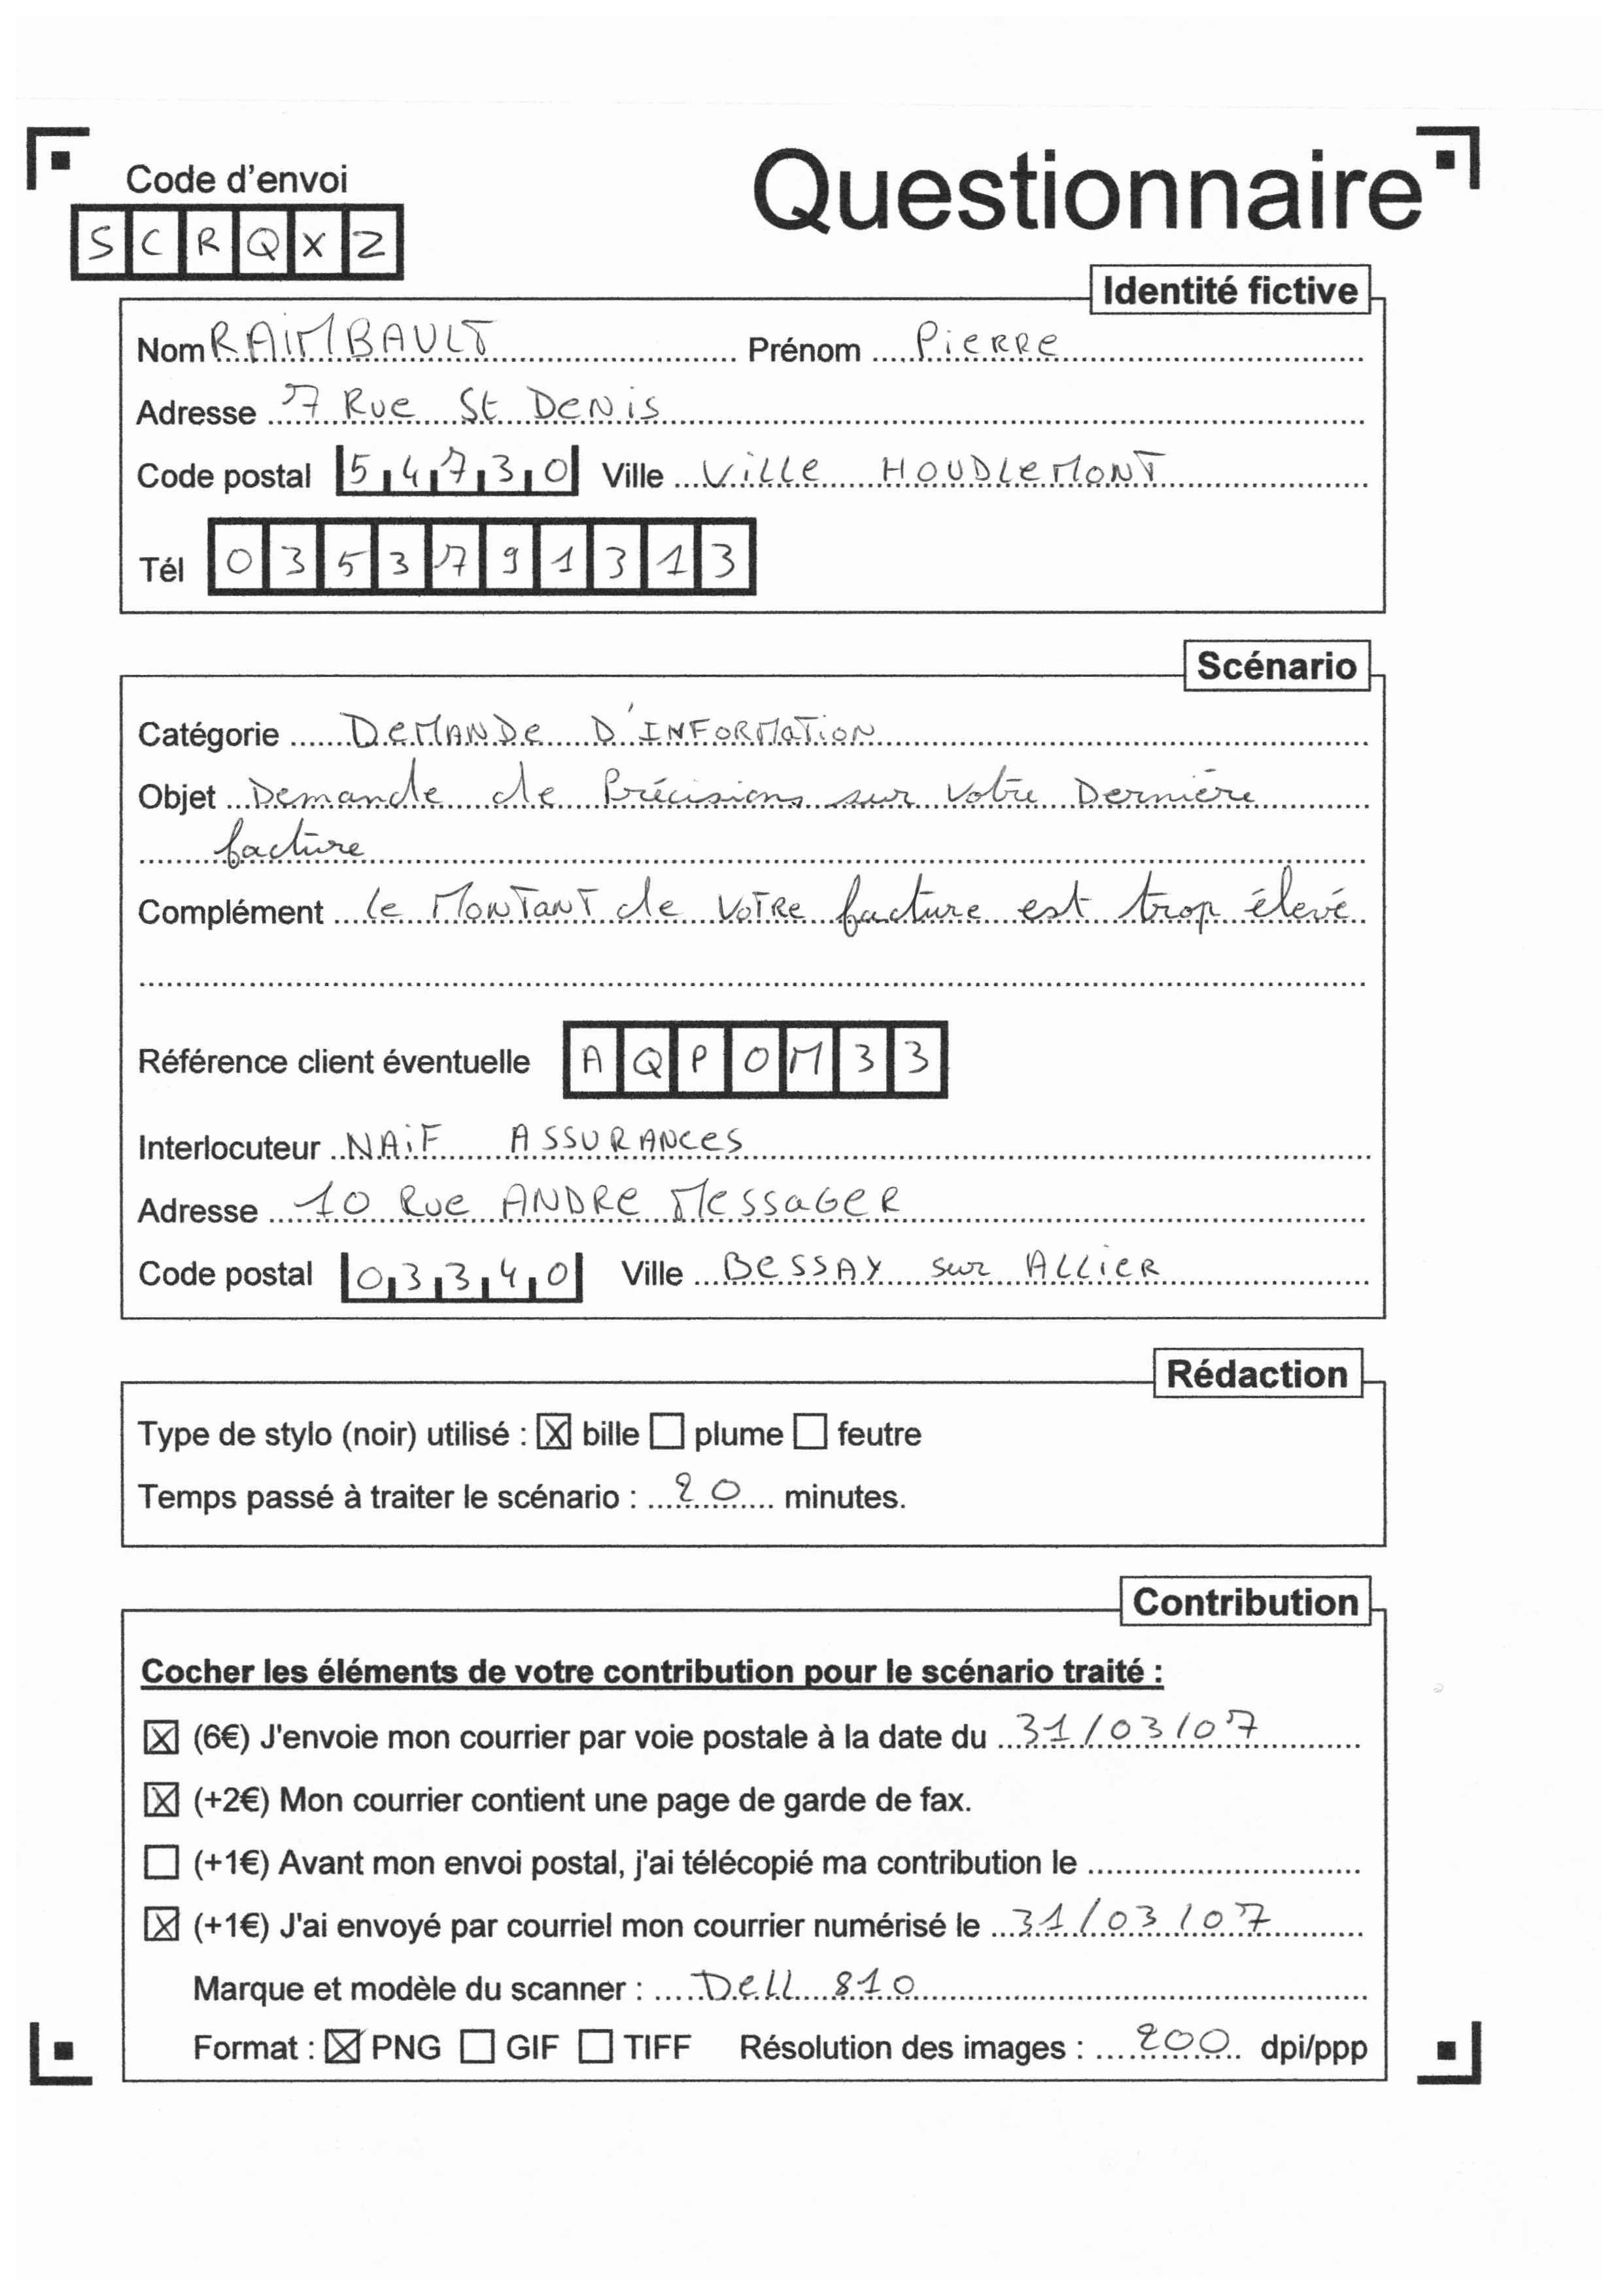 Code d'envoi
Questionnaire
SCRQXZ
Identité fictive
Nom RAIMBAULT Prénom Pierre
Adresse 7 Rue St Denis
Code postal 54730 Ville Ville HOUDLEMONT
Tél 0353791313
Scénario
Catégorie DEMANDE D'INFORMATION
Objet Demande de Précisions sur Votre Dernière
facture
Complément Le Montant de Votre facture est trop élevé
Référence client éventuelle AQPOM33
Interlocuteur NAIF ASSURANCES
Adresse 10 Rue ANDRE MESSAGER
Code postal 03340 Ville BESSAY sur ALLIER
Rédaction
Type de stylo (noir) utilisé : ☒ bille ☐ plume ☐ feutre
Temps passé à traiter le scénario : 20 minutes.
Contribution
Cocher les éléments de votre contribution pour le scénario traité :
☒ (6€) J'envoie mon courrier par voie postale à la date du 31/03/07
☒ (+2€) Mon courrier contient une page de garde de fax.
☐ (+1€) Avant mon envoi postal, j'ai télécopié ma contribution le
☒ (+1€) J'ai envoyé par courriel mon courrier numérisé le 31/03/07
Marque et modèle du scanner : Dell 810
Format : ☒ PNG ☐ GIF ☐ TIFF Résolution des images : 200 dpi/ppp